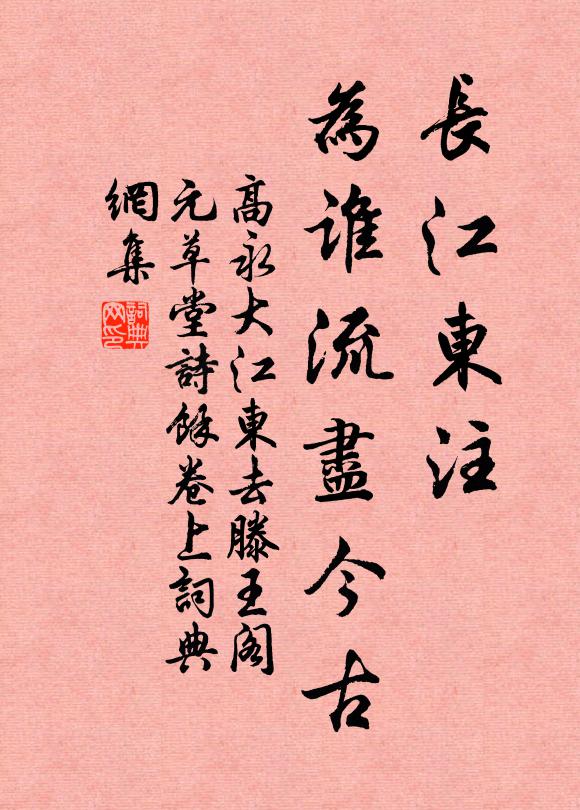 長江東注
為誰流盡今古
高永大江東去滕王阁
元草堂詩餘卷上詞典
網集
詞典网印